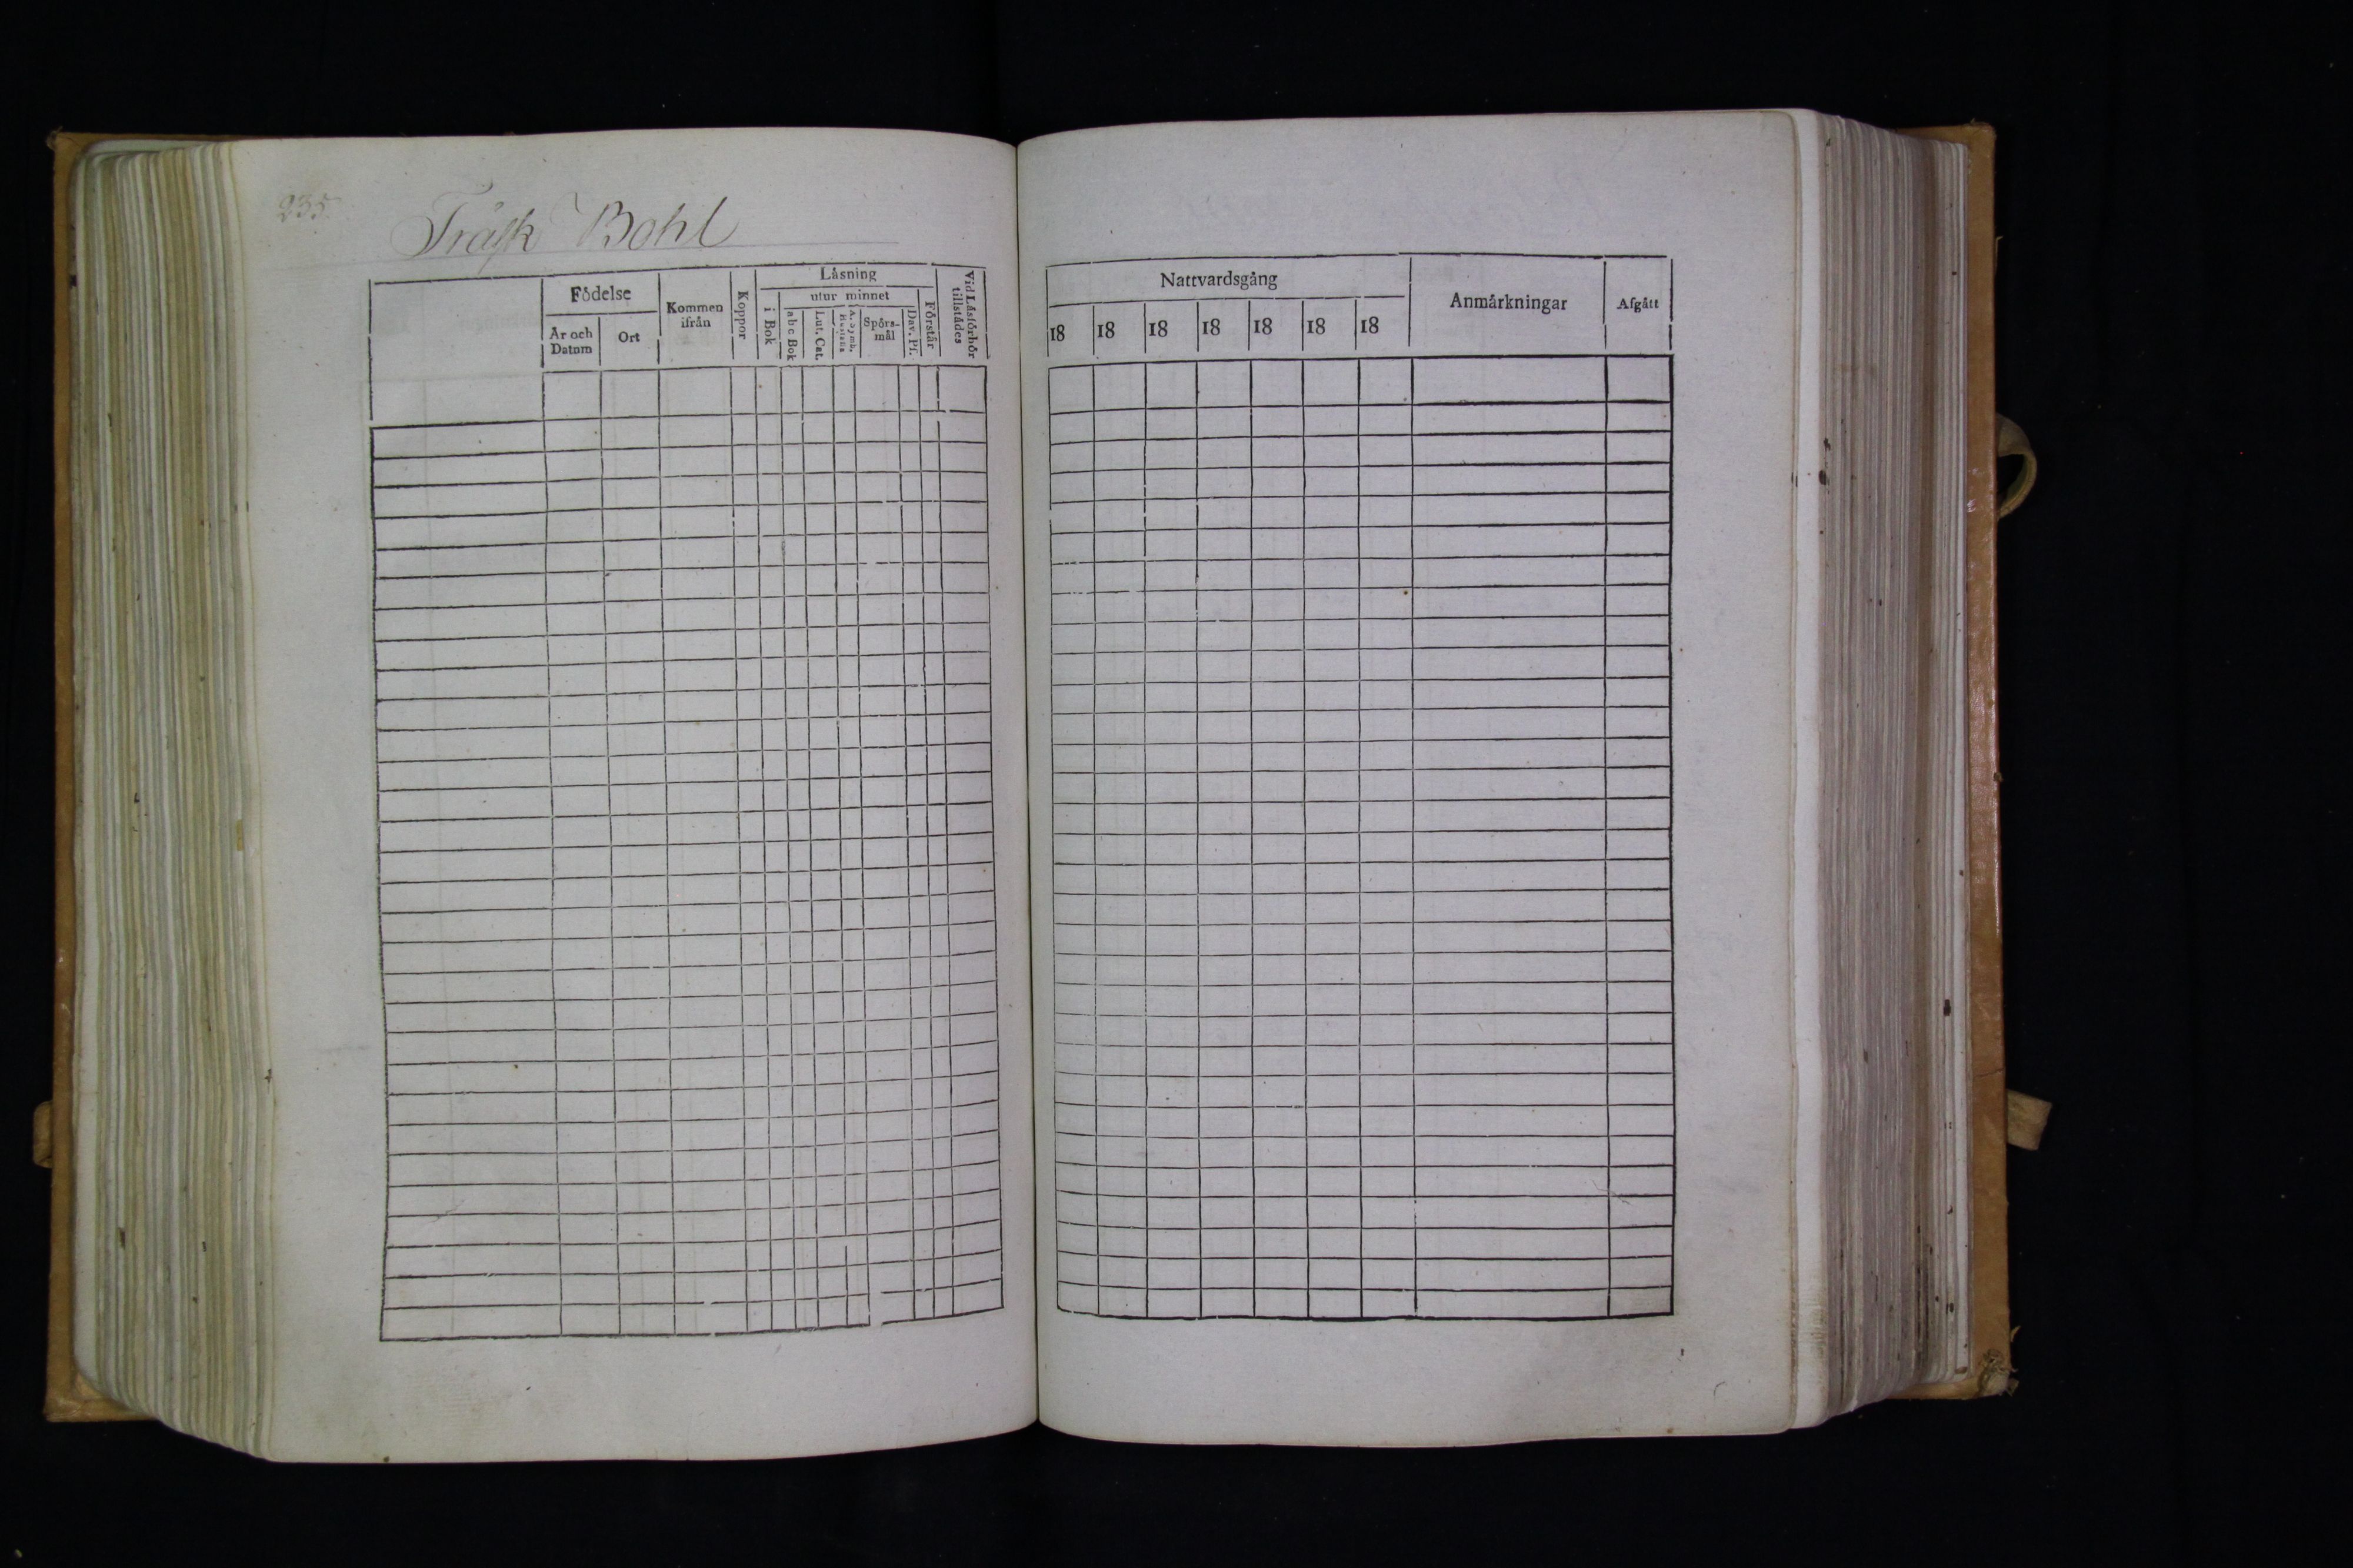 235.
Träsk Bohl
Födelse
År och
Datum
Ort
Kommen
ifrån
Koppor
Låsning
i Bok
utur minnet
a b c Bok
Lut. Cat.
A. Symb.
Spörs-
mål
Dav. Ps.
Förstår
Vid Läsförhör
tillstådes
Nattvardsgång
18 18 18 18 18 18 18
Anmärkningar
Afgått